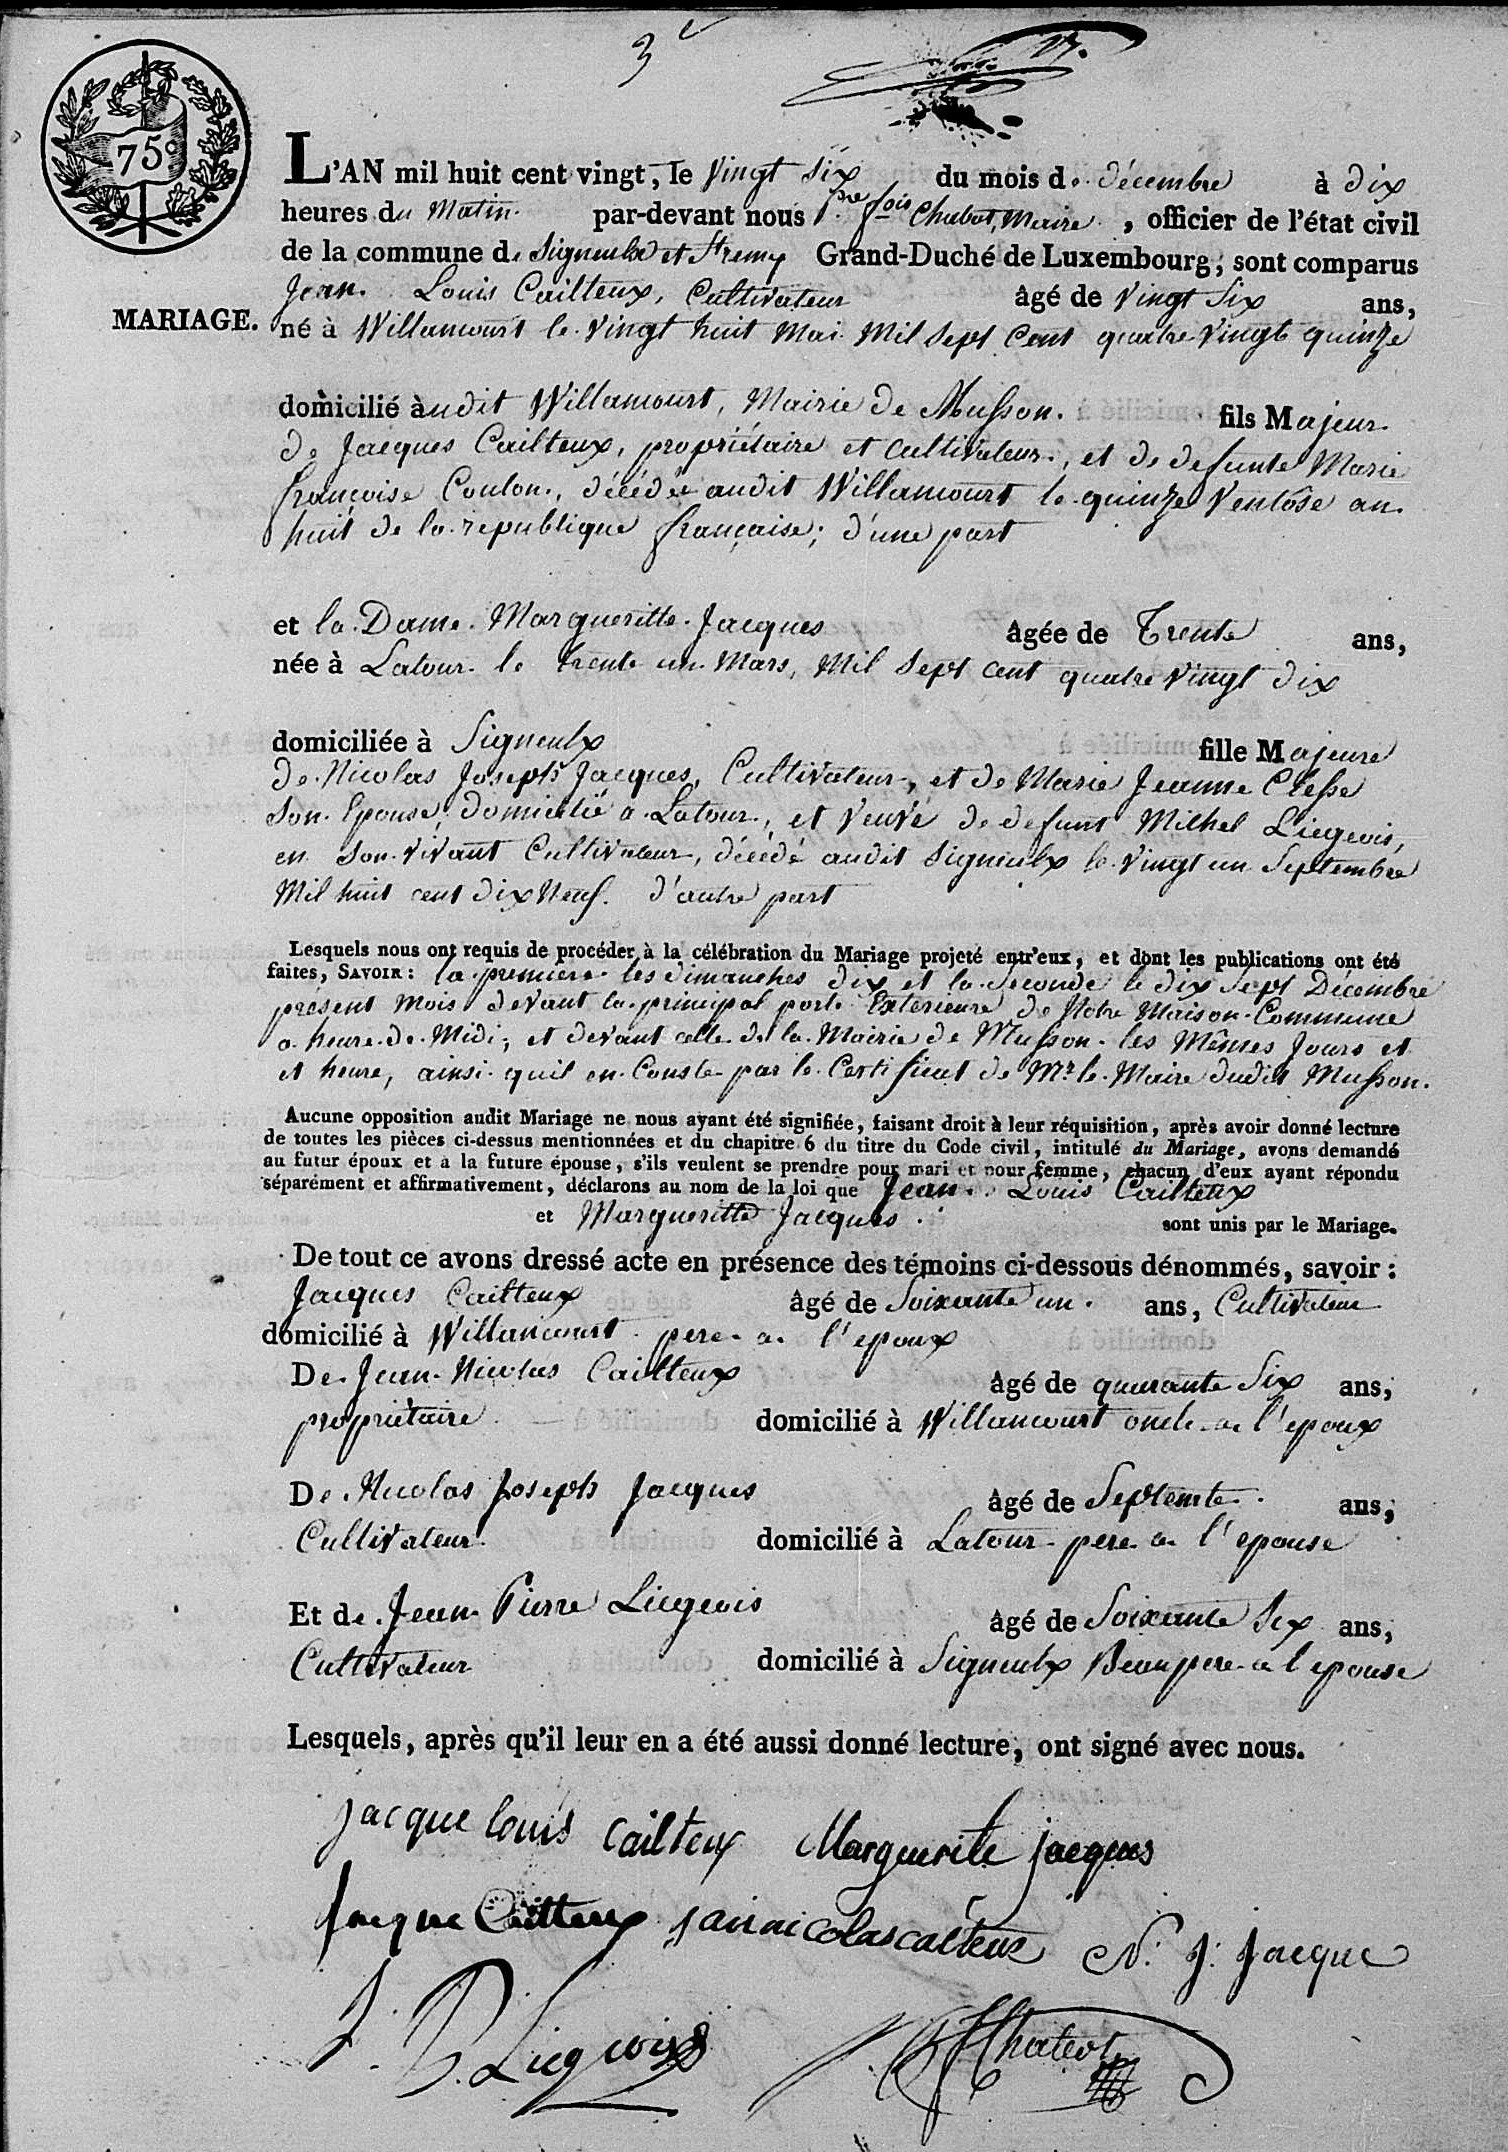 3e
17.
75c
L'AN mil huit cent vingt, le Vingt Six du mois de décembre à dix
heures du Matin par-devant nous Pre fois Chabot, Maire, officier de l'état civil
de la commune de Signeulx et St remy Grand-Duché de Luxembourg, sont comparus
Jean Louis Cailteux, Cultivateur âgé de Vingt Six ans,
MARIAGE.
né à Willancourt le Vingt huit Mai Mil Sept Cent quatre Vingt quinze
domicilié à udit Willancourt, Mairie de Musson. fils Majeur
de Jacques Cailteux, propriétaire et Cultivateur, et de defunte Marie
françoise Coulon, décédée audit Willancourt le quinze Ventôse an
huit de la republique française; d'une part
et la Dame Margueritte Jacques âgée de Trente ans,
née à Latour le trente un Mars, Mil Sept cent quatre Vingt dix
domiciliée à Signeulx fille Majeure
de Nicolas Joseph Jacques, Cultivateur, et de Marie Jeanne Clesse
Son Epouse, domicilié a Latour, et Veuve de defunt Milhel Liegeois,
en Son Vivant Cultivateur, décédé audit Signeulx le Vingt un Septembre
Mil huit cent dix Neuf. d'autre part
Lesquels nous ont requis de procéder à la célébration du Mariage projeté entr'eux, et dont les publications ont été
faites, SAVOIR: la premiere les dimanches dix et la Seconde le dix Sept Décembre
présent mois devant la principal porte Exterieure de Notre Maison Commune
a heure de Midi; et devant celle de la Mairie de Musson les Mêmes Jours et
et heure, ainsi quil en Conste par le Certificat de Mr le Maire dudit Musson.
Aucune opposition audit Mariage ne nous ayant été signifiée, faisant droit à leur réquisition, après avoir donné lecture
de toutes les pièces ci-dessus mentionnées et du chapitre 6 du titre du Code civil, intitulé du Mariage, avons demandé
au futur époux et à la future épouse, s'ils veulent se prendre pour mari et pour femme, chacun d'eux ayant répondu
séparément et affirmativement, déclarons au nom de la loi que Jean Louis Cailteux
et Margueritte Jacques sont unis par le Mariage.
De tout ce avons dressé acte en présence des témoins ci-dessous dénommés, savoir:
Jacques Cailteux âgé de Soixante un ans, Cultivateur
domicilié à Willancourt pere a l'epoux
De Jean Nicolas Cailteux âgé de quarante Six ans,
propriétaire domicilié à Willancourt oncle a l'epoux
De Nicolas Joseph Jacques âgé de Septente ans,
Cultivateur domicilié à Latour pere a l'epouse
Et de Jean Pierre Liegeois âgé de Soixante Six ans,
Cultivateur domicilié à Signeulx Beaupere a l'epouse
Lesquels, après qu'il leur en a été aussi donné lecture, ont signé avec nous.
jacque louis cailteux Marguerite jacques
Jacque Cailteux jannicolascailteux N. J. jacque
J. P. Liegeois PFChabot